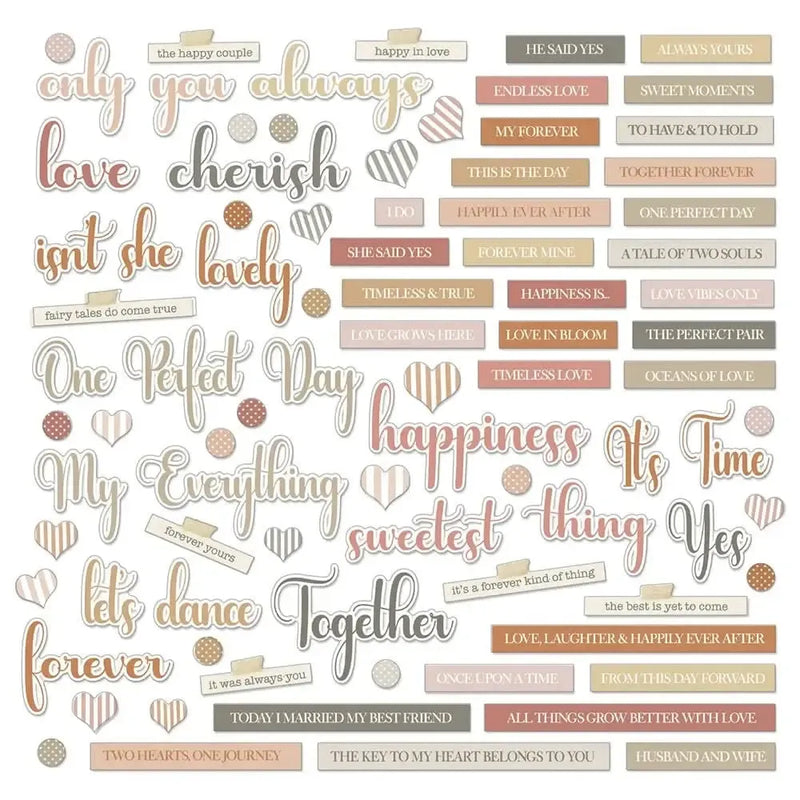 the happy couple
happy in love
HE SAID YES
ALWAYS YOURS
only you always
ENDLESS LOVE
SWEET MOMENTS
MY FOREVER
TO HAVE & TO HOLD
love cherish
THIS IS THE DAY
TOGETHER FOREVER
I DO
HAPPILY EVER AFTER
ONE PERFECT DAY
isn't she lovely
SHE SAID YES
FOREVER MINE
A TALE OF TWO SOULS
TIMELESS & TRUE
HAPPINESS IS...
LOVE VIBES ONLY
fairy tales do come true
LOVE GROWS HERE
LOVE IN BLOOM
THE PERFECT PAIR
One Perfect Day
TIMELESS LOVE
OCEANS OF LOVE
happiness
It's Time
My Everything
sweetest thing
Yes
forever yours
it's a forever kind of thing
let's dance
Together
the best is yet to come
forever
LOVE, LAUGHTER & HAPPILY EVER AFTER
it was always you
ONCE UPON A TIME
FROM THIS DAY FORWARD
TODAY I MARRIED MY BEST FRIEND
ALL THINGS GROW BETTER WITH LOVE
TWO HEARTS, ONE JOURNEY
THE KEY TO MY HEART BELONGS TO YOU
HUSBAND AND WIFE